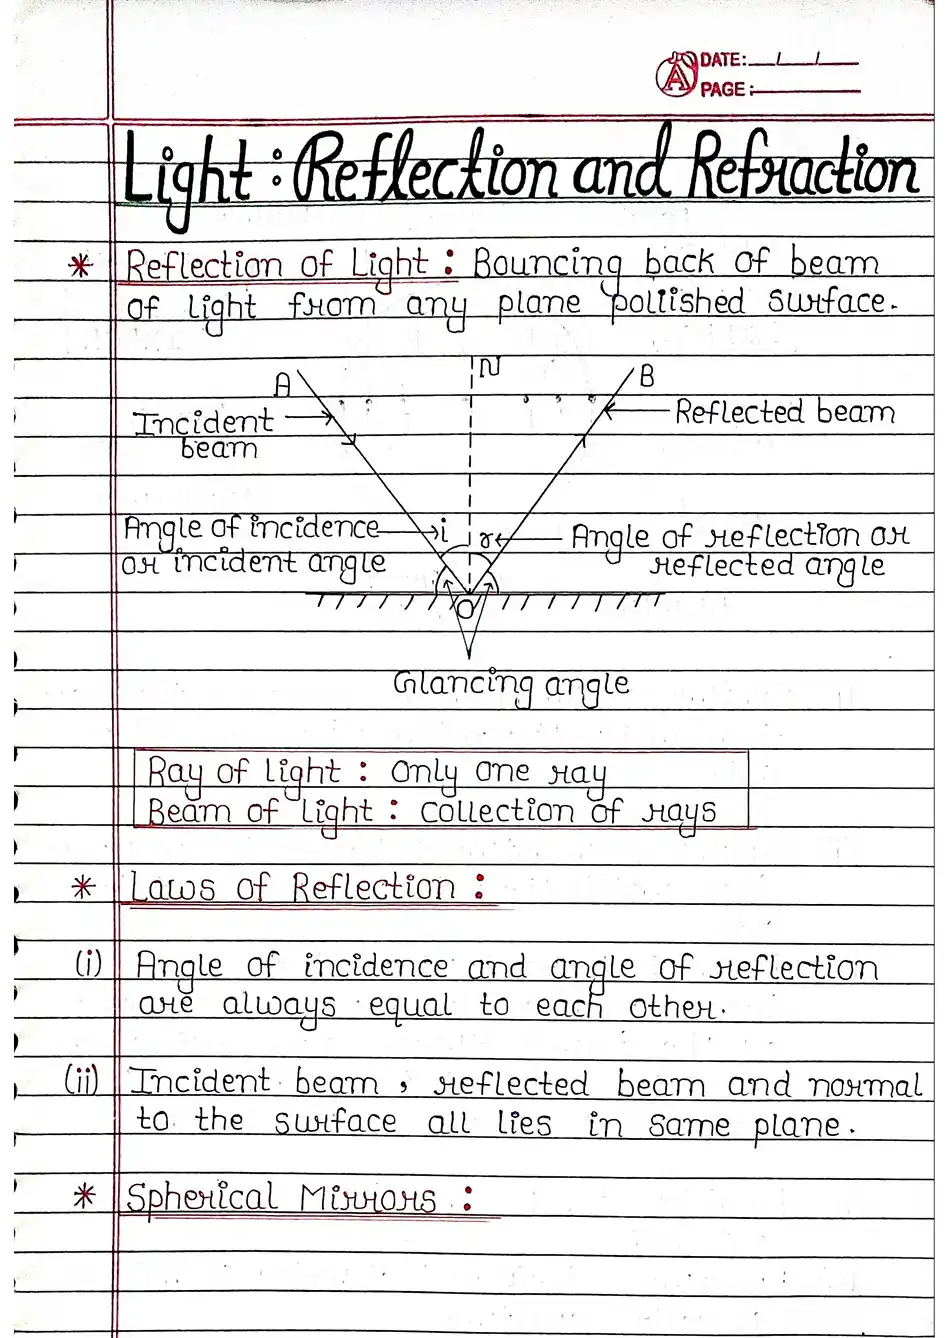 DATE: __/__/__
PAGE:
Light : Reflection and Refraction
* Reflection of Light : Bouncing back of beam
of light from any plane poliished surface.
N
A
B
Incident
beam
Reflected beam
Angle of incidence
or incident angle
i
r
Angle of reflection or
reflected angle
O
Glancing angle
Ray of light : only one ray
Beam of light : collection of rays
* Laws of Reflection :
(i) Angle of incidence and angle of reflection
are always equal to each other.
(ii) Incident beam, reflected beam and normal
to the surface all lies in same plane.
* Spherical Mirrors :